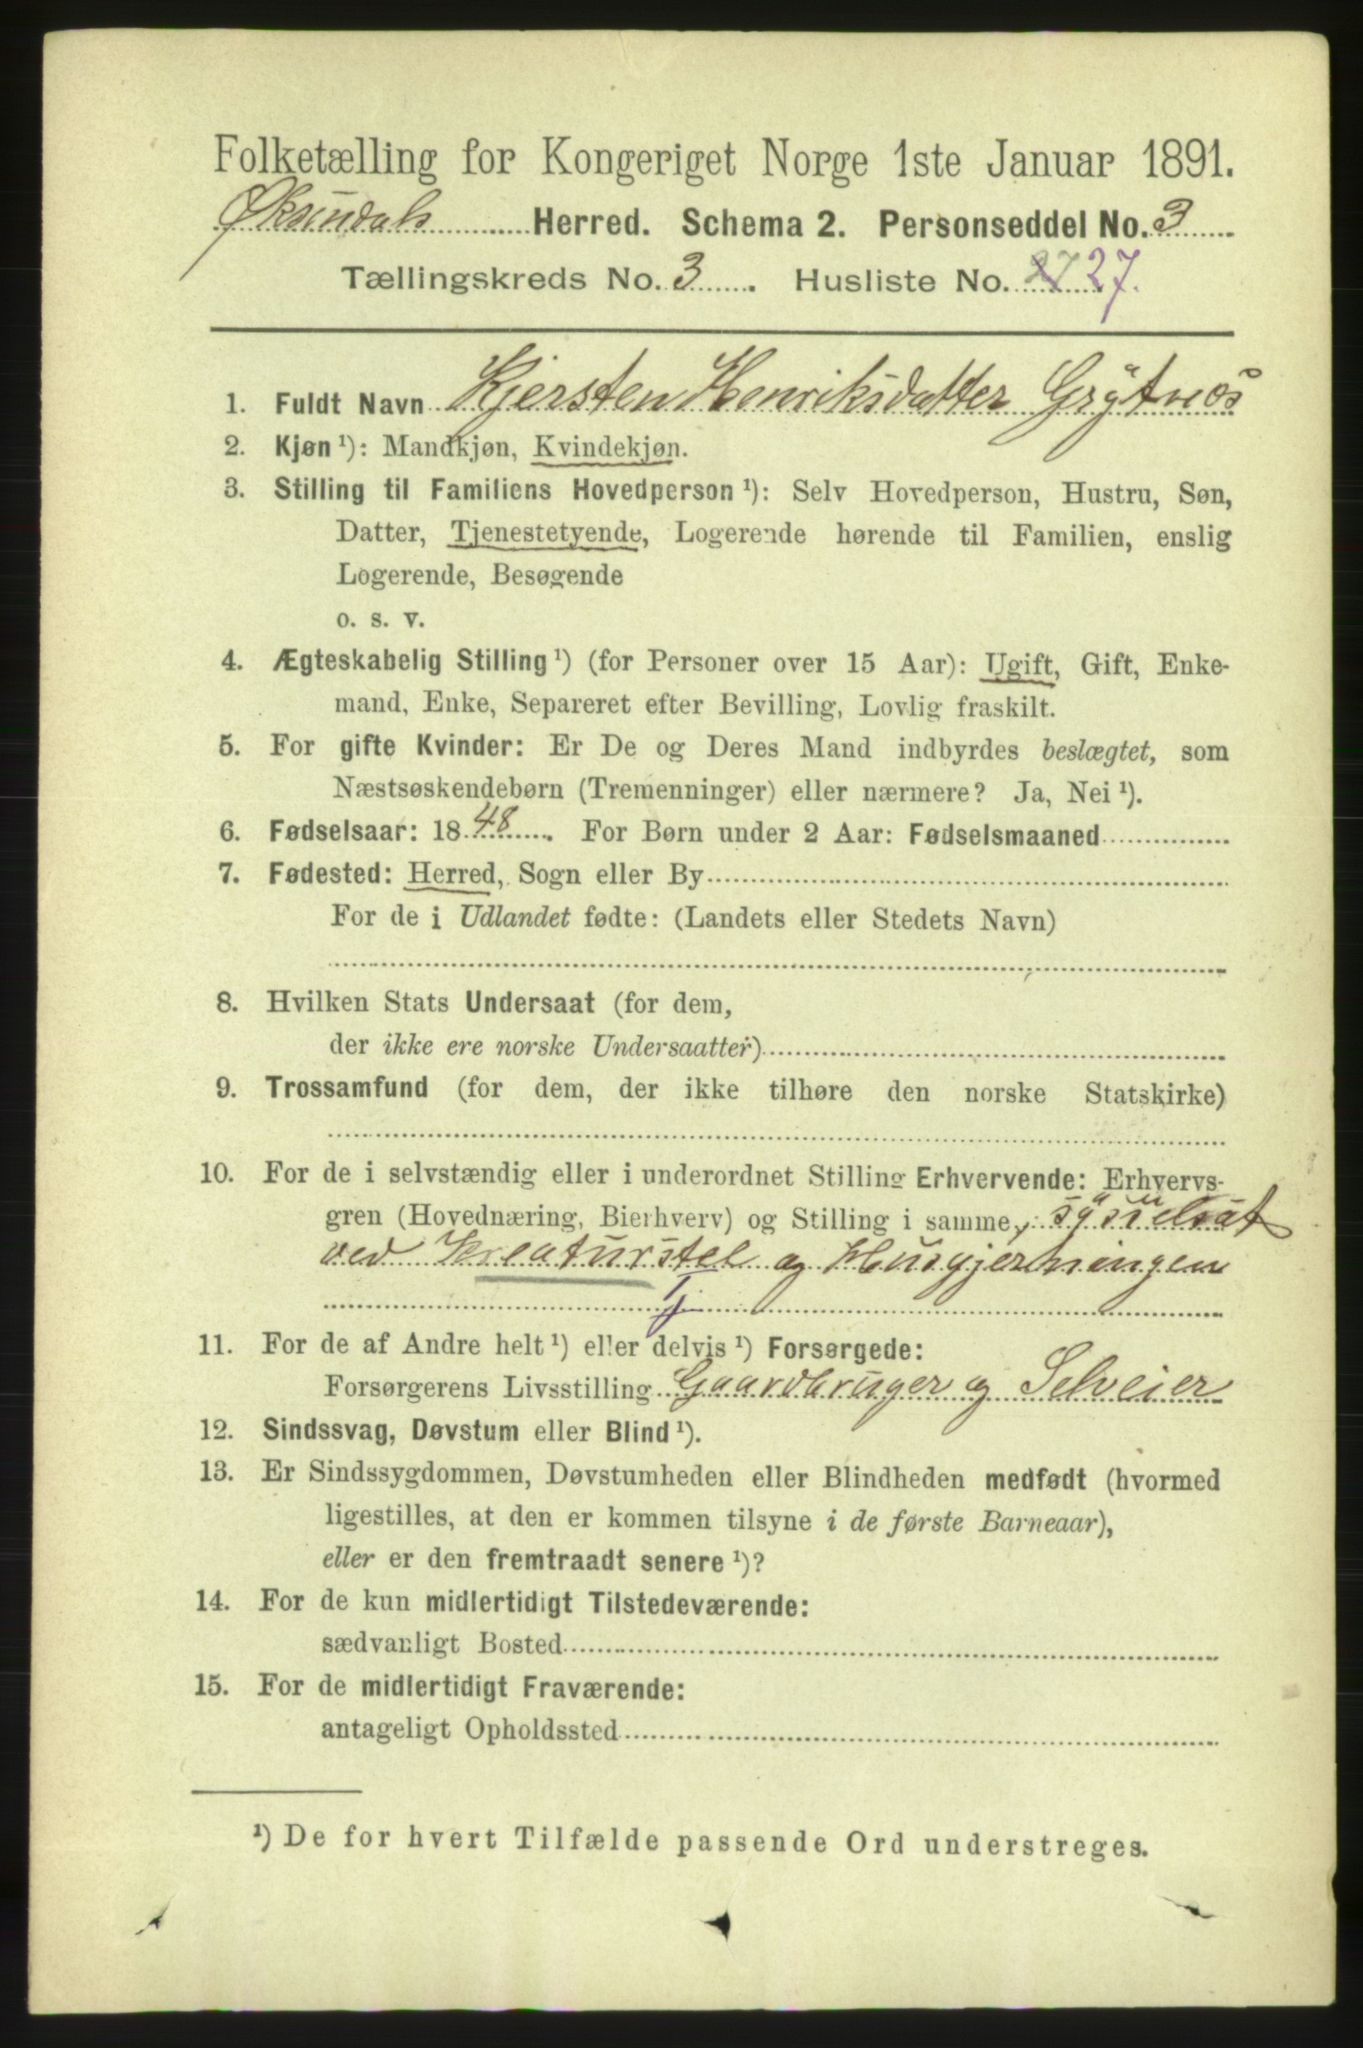 Folketælling for Kongeriget Norge 1ste Januar 1891.
Øksendals Herred. Schema 2. Personseddel No. 3
Tællingskreds No. 3. Husliste No. 27 27.
1. Fuldt Navn Kjersten Henriksdatter Grytnes
2. Kjøn ¹): Mandkjøn, Kvindekjøn.
3. Stilling til Familiens Hovedperson ¹): Selv Hovedperson, Hustru, Søn,
Datter, Tjenestetyende, Logerende hørende til Familien, enslig
Logerende, Besøgende
o. s. v.
4. Ægteskabelig Stilling ¹) (for Personer over 15 Aar): Ugift, Gift, Enke-
mand, Enke, Separeret efter Bevilling, Lovlig fraskilt.
5. For gifte Kvinder: Er De og Deres Mand indbyrdes beslægtet, som
Næstsøskendebørn (Tremenninger) eller nærmere? Ja, Nei ¹).
6. Fødselsaar: 1848. For Børn under 2 Aar: Fødselsmaaned
7. Fødested: Herred, Sogn eller By
For de i Udlandet fødte: (Landets eller Stedets Navn)
8. Hvilken Stats Undersaat (for dem,
der ikke ere norske Undersaatter)
9. Trossamfund (for dem, der ikke tilhøre den norske Statskirke)
10. For de i selvstændig eller i underordnet Stilling Erhvervende: Erhvervs-
gren (Hovednæring, Bierhverv) og Stilling i samme, sysselsat
ved Kreaturstel og Husgjerningen
11. For de af Andre helt ¹) eller delvis ¹) Forsørgede:
Forsørgerens Livsstilling Gaardbruger og Selveier
12. Sindssvag, Døvstum eller Blind ¹).
13. Er Sindssygdommen, Døvstumheden eller Blindheden medfødt (hvormed
ligestilles, at den er kommen tilsyne i de første Barneaar),
eller er den fremtraadt senere ¹)?
14. For de kun midlertidigt Tilstedeværende:
sædvanligt Bosted
15. For de midlertidigt Fraværende:
antageligt Opholdssted
¹) De for hvert Tilfælde passende Ord understreges.